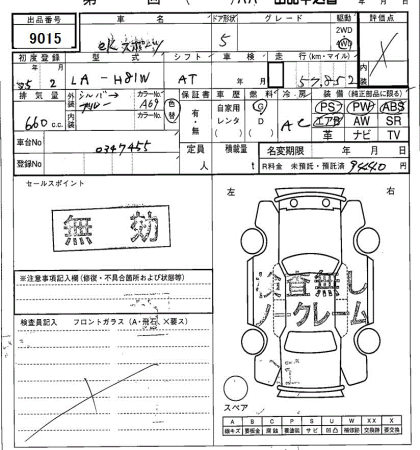 出品番号 車名 ドア形状 グレード 駆動 評価点
9015 ekスポーツ 5 2WD 4WD
初度登録 型式 シフト 車検 走行(km・マイル) 内装
年 月 年 月
05 2 LA-H81W AT 57852
排気量 外装 シルバー カラーNo. 色替 保証書 車歴 燃料 冷房 装備(純正部品に限る)
660cc A69 有・無 自家用 ( ) レンタ ( ) G D AC PS PW ABS
エアB AW SR
革 ナビ TV
車台No 0347455 定員 人 積載量 t 名変期限 年 月 日
登録No R料金 未預託・預託済 9440円
セールスポイント 左 右
無効
査無し
ノークレーム
※注意事項記入欄(修復・不具合箇所および状態等)
検査員記入 フロントガラス(A・飛石、×要ス)
スペア
A B C P S U W XX X
線キズ 要板金 腐蝕 要塗装 サビ 凹凸 補修跡 交換跡 要交換